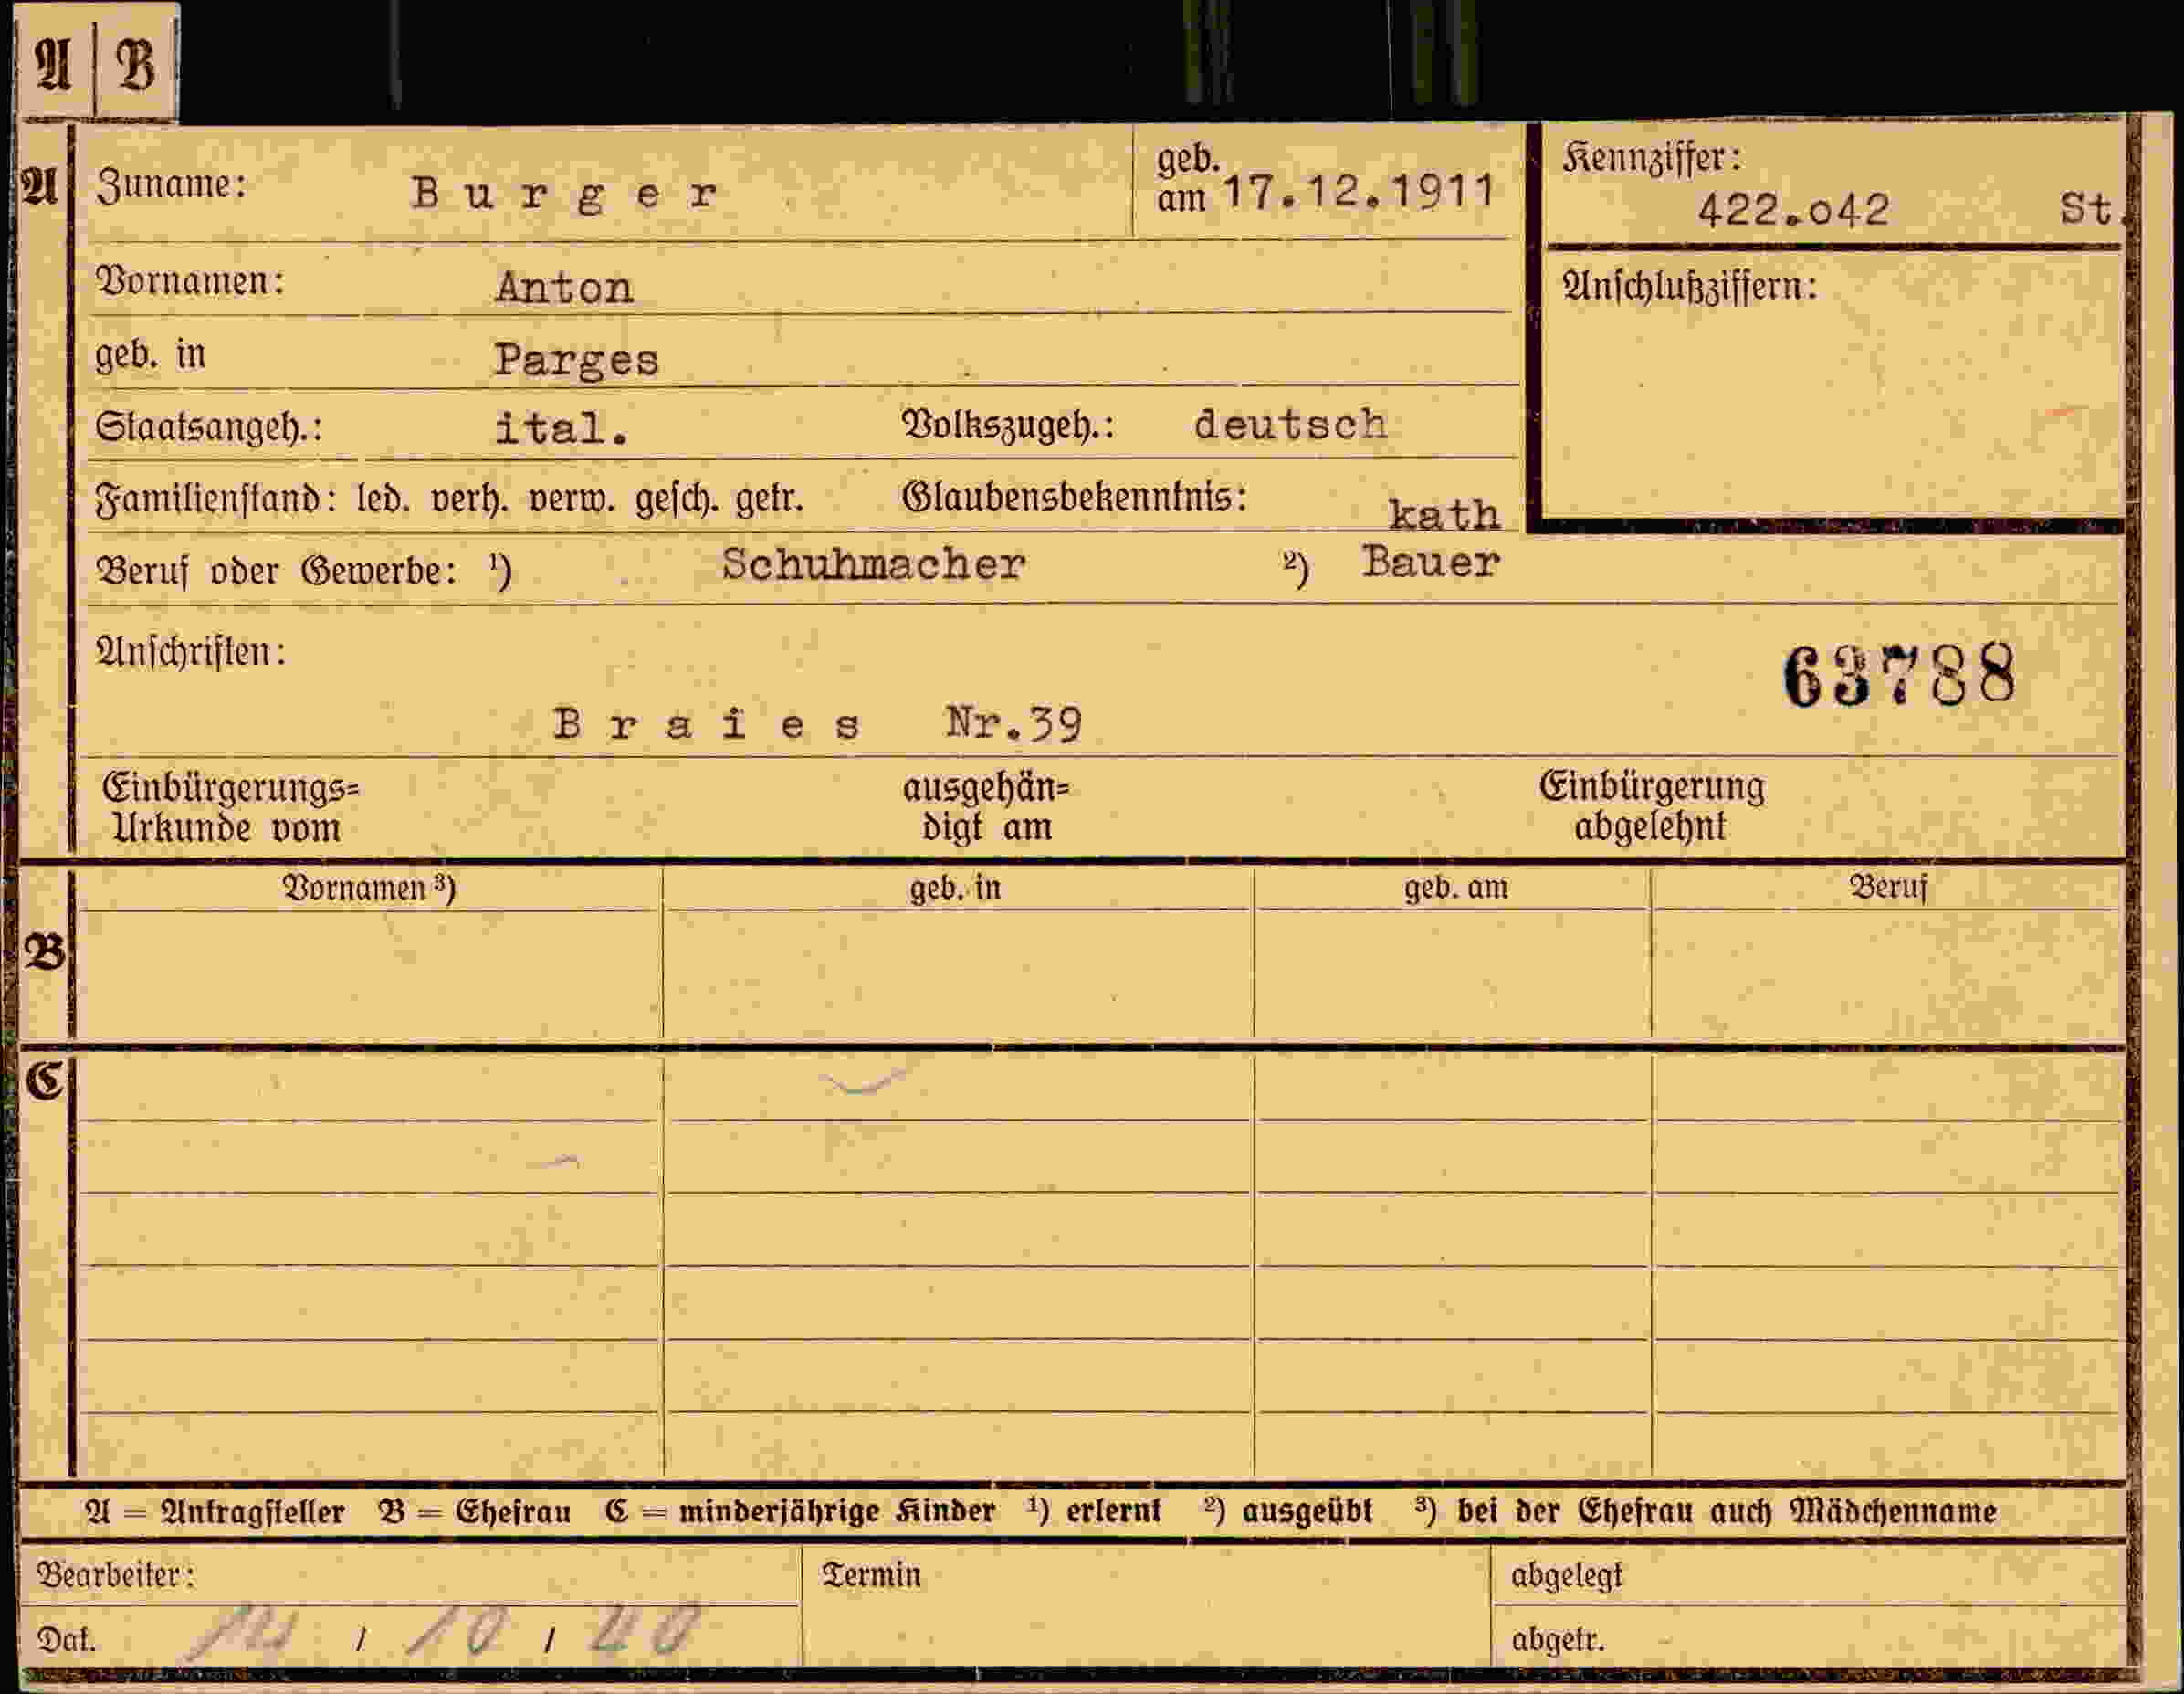 A B
A Zuname: Burger geb. am 17.12.1911 Kennziffer: 422.o42 St.
Vornamen: Anton Anschlußziffern:
geb. in Parges
Staatsangeh.: ital. Volkszugeh.: deutsch
Familienstand: led. verh. verw. gesch. getr. Glaubensbekenntnis: kath
Beruf oder Gewerbe: ¹) Schuhmacher ²) Bauer
Anschriften: 63788
Braies Nr.39
Einbürgerungs= ausgehän= Einbürgerung
Urkunde vom digt am abgelehnt
Vornamen ³) geb. in geb. am Beruf
B
C
A = Antragsteller B = Ehefrau C = minderjährige Kinder ¹) erlernt ²) ausgeübt ³) bei der Ehefrau auch Mädchenname
Bearbeiter: Termin abgelegt
Dat. / 10 / 40 abgetr.